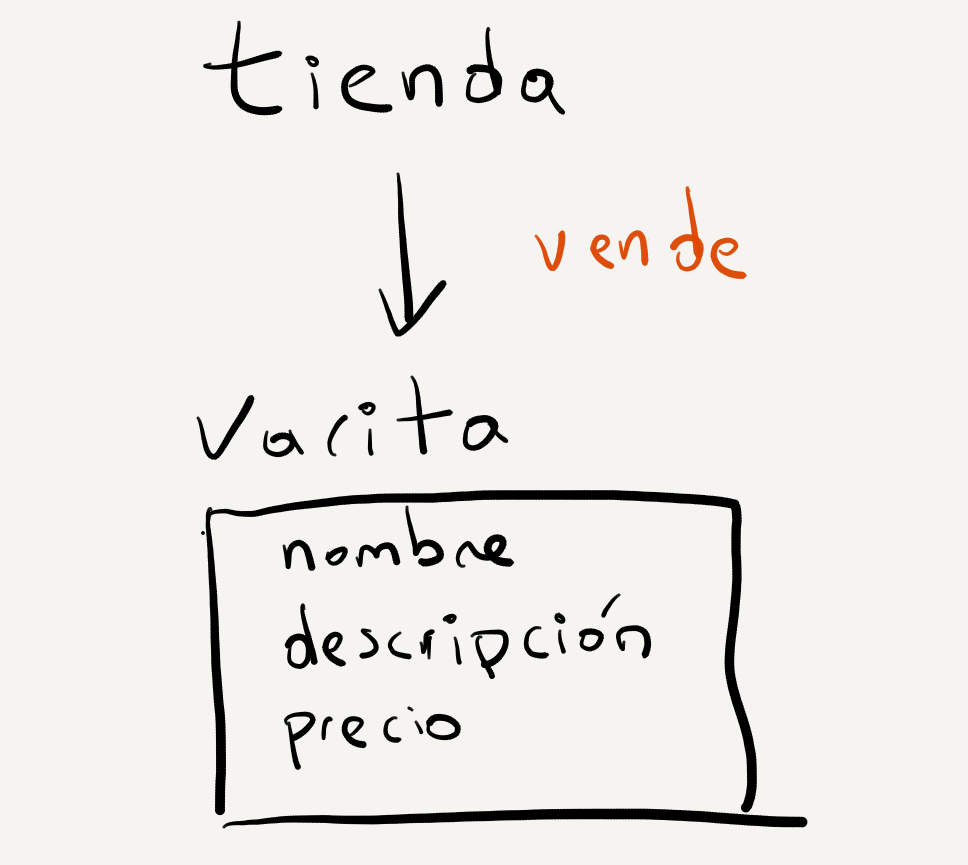 tienda
vende
vacita
nombre
descripción
precio